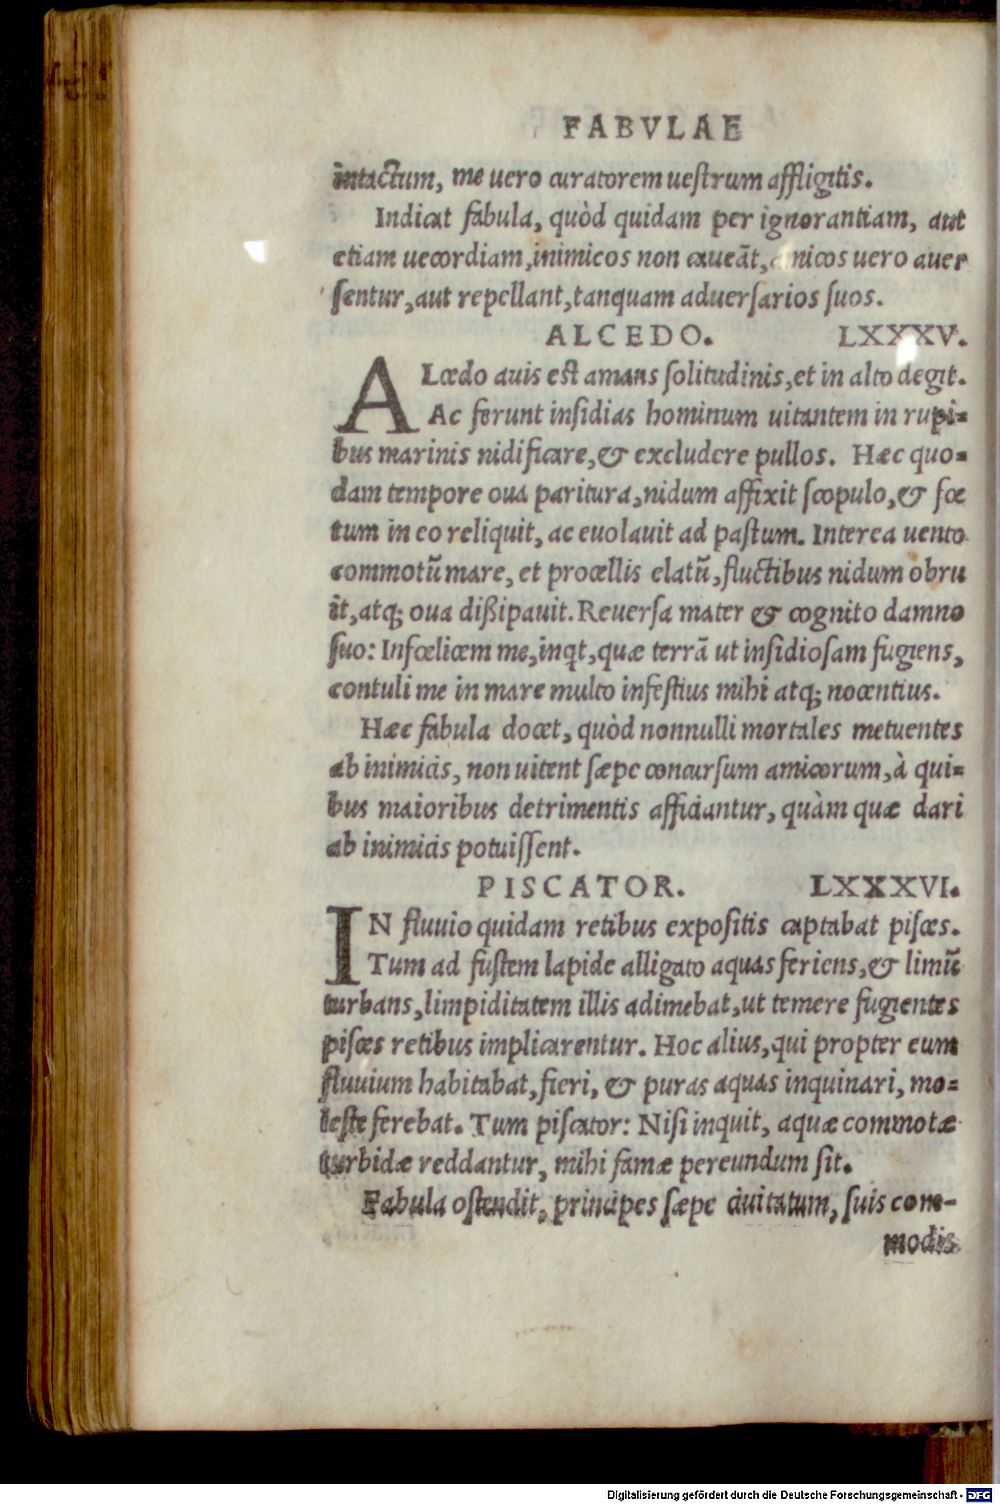 FABVLAE
intactum, me uero curatorem uestrum affligitis.
Indicat fabula, quòd quidam per ignorantiam, aut
etiam uecordiam, inimicos non caueãt, amicos uero auer
sentur, aut repellant, tanquam aduersarios suos.
ALCEDO. LXXXV.
ALcedo auis est amans solitudinis, et in alto degit.
Ac ferunt insidias hominum uitantem in rupi=
bus marinis nidificare, & excludere pullos. Haec quo=
dam tempore oua paritura, nidum affixit scopulo, & fœ
tum in eo reliquit, ac euolauit ad pastum. Interea uento
commotũ mare, et procellis elatũ, fluctibus nidum obru
it, atq; oua dißipauit. Reuersa mater & cognito damno
suo: Infœlicem me, inqt, quæ terrã ut insidiosam fugiens,
contuli me in mare multo infestius mihi atq; nocentius.
Hæc fabula docet, quòd nonnulli mortales metuentes
ab inimicis, non uitent sæpe concursum amicorum, à qui=
bus maioribus detrimentis afficiantur, quàm quæ dari
ab inimicis potuissent.
PISCATOR. LXXXVI.
IN fluuio quidam retibus expositis captabat pisces.
Tum ad fustem lapide alligato aquas feriens, & limũ
turbans, limpiditatem illis adimebat, ut temere fugientes
pisces retibus implicarentur. Hoc alius, qui propter eum
fluuium habitabat, fieri, & puras aquas inquinari, mo=
leste ferebat. Tum piscator: Nisi inquit, aquæ commotæ
turbidæ reddantur, mihi famæ pereundum sit.
Fabula ostendit, principes sæpe ciuitatum, suis com-
modis
Digitalisierung gefördert durch die Deutsche Forschungsgemeinschaft - DFG